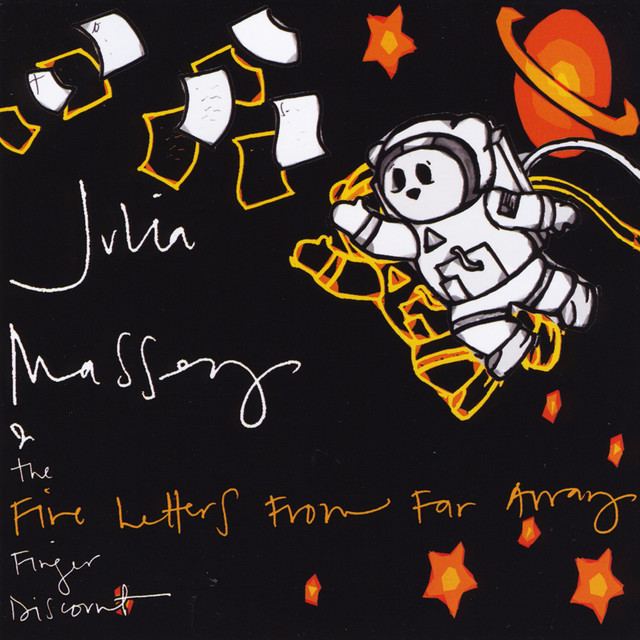 Julia
Massey
&
the
Five Letters From Far Away
Finger
Discount